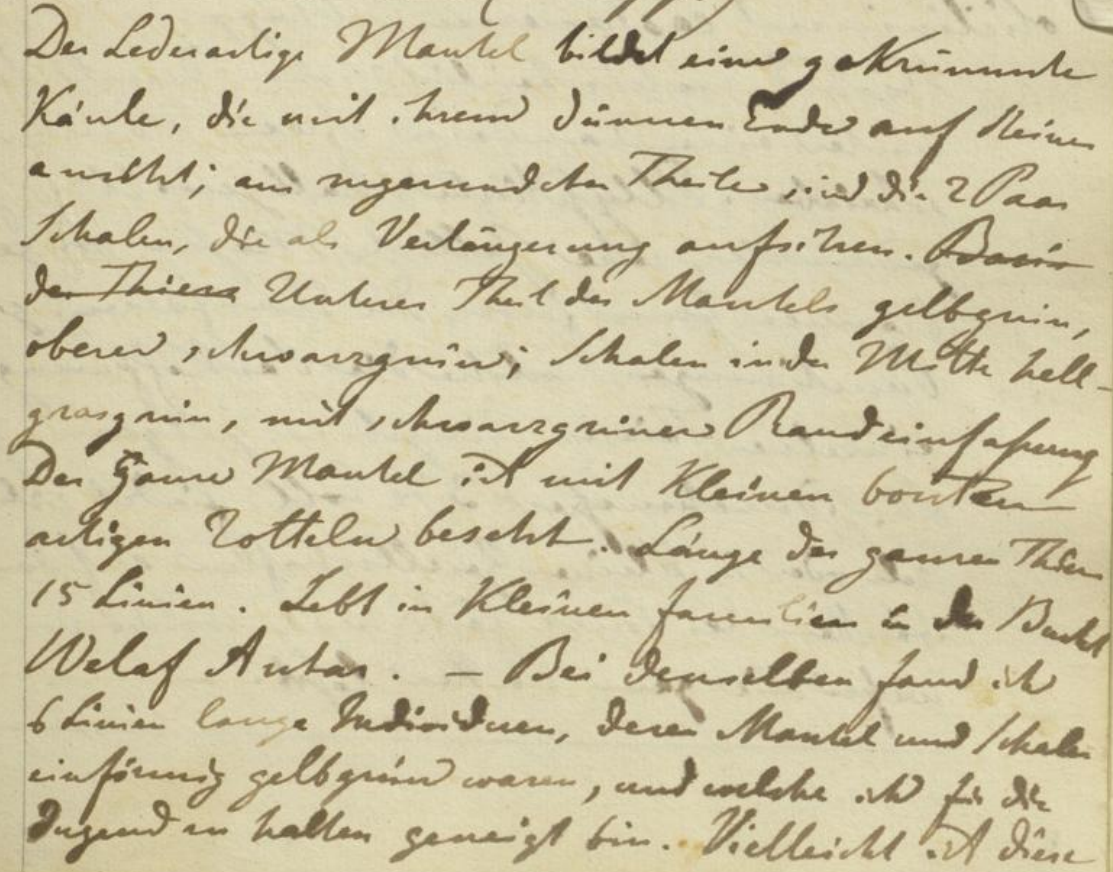 Der Lederartige Mantel bildet eine gekrümmte
Käule, die mit ihrem dünnen Ende auf Steinen
ansitzt; am zugerundeten Theile sind die 2 Paar
Schalen, die als Verlängerung aufsitzen. Basis
des Thieres Unterer Theil des Mantels gelbgrün,
oberer schwarzgrün; Schalen in der Mitte hell-
grasgrün, mit schwarzgrüner Randeinfaßung
Der ganze Mantel ist mit kleinen borsten
artigen Zotteln besetzt. Länge des ganzen Thiers
15 Linien. Lebt in kleinen familien in der Bucht
Welaf Antar. – Bei denselben fand ich
6 Linien lange Individuen, deren Mantel und Schalen
einförmig gelbgrün waren, und welche ich für die
Jugend zu halten geneigt bin. Vielleicht ist diese